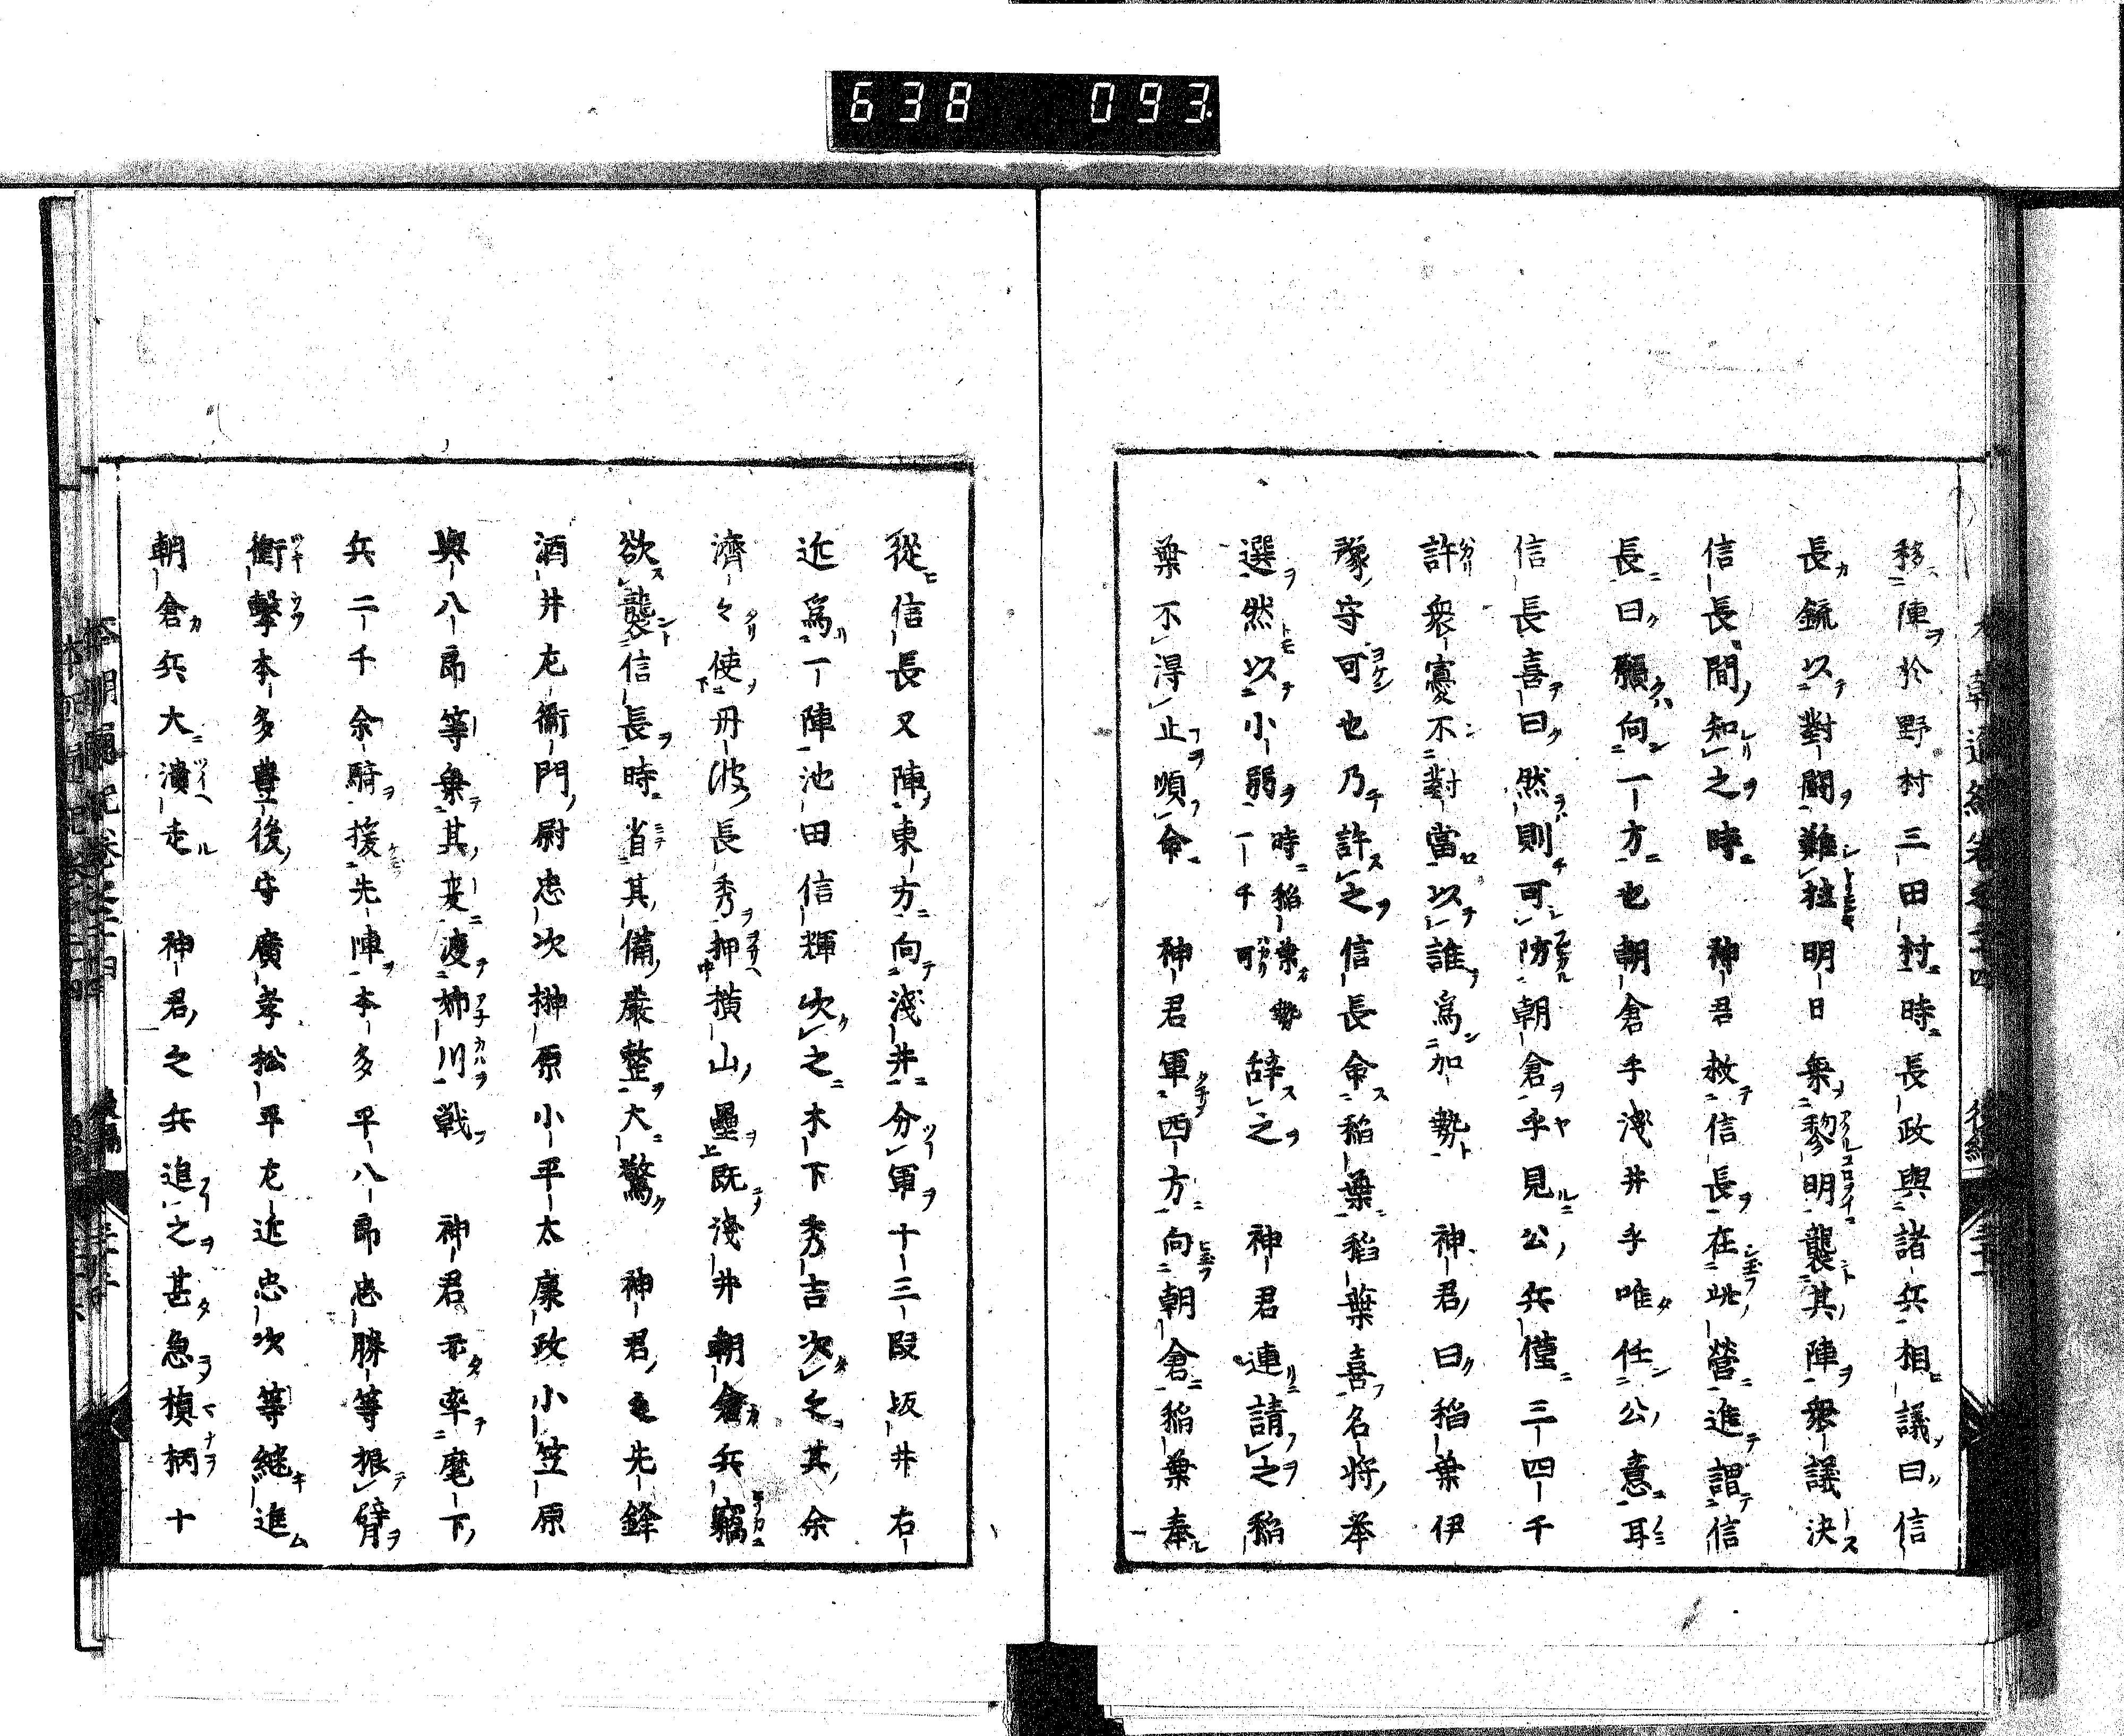 638 093
移陣於野村三田村時長政與諸兵相議曰信
長カ鋭以對闘難拉明日無黎明襲其陣衆議決
信長間知之時 神君救信長在此營進謂信
長曰願向一方也朝倉乎淺井乎唯任公意耳
信長喜曰然則可防朝倉乎見公兵僅三四千
許衆寡不對當以誰爲加勢 神君曰稲葉伊
豫守可也乃許之信長命稲葉稲葉喜名将舉
選然以小弱時稲葉勢一千可辞之 神君連請之稲
葉不得止順命 神君軍西方向朝倉稲葉奉
從信長又陣東方向淺井分軍十三段坂井右
近爲一陣池田信輝次之木下秀吉次之其余
濟々使丹波長秀押横山壘既淺井朝倉兵竊
欲襲信長時省其備嚴整大驚 神君先鋒
酒井左衛門尉忠次榊原小平太康政小笠原
與八郎等棄其変渡姉川戦 神君亦率麾下
兵二千余騎援先陣本多平八郎忠勝等振臂
衝撃本多豊後守廣孝松平左近忠次等継進
朝倉兵大潰走 神君之兵追之甚急槙柄十